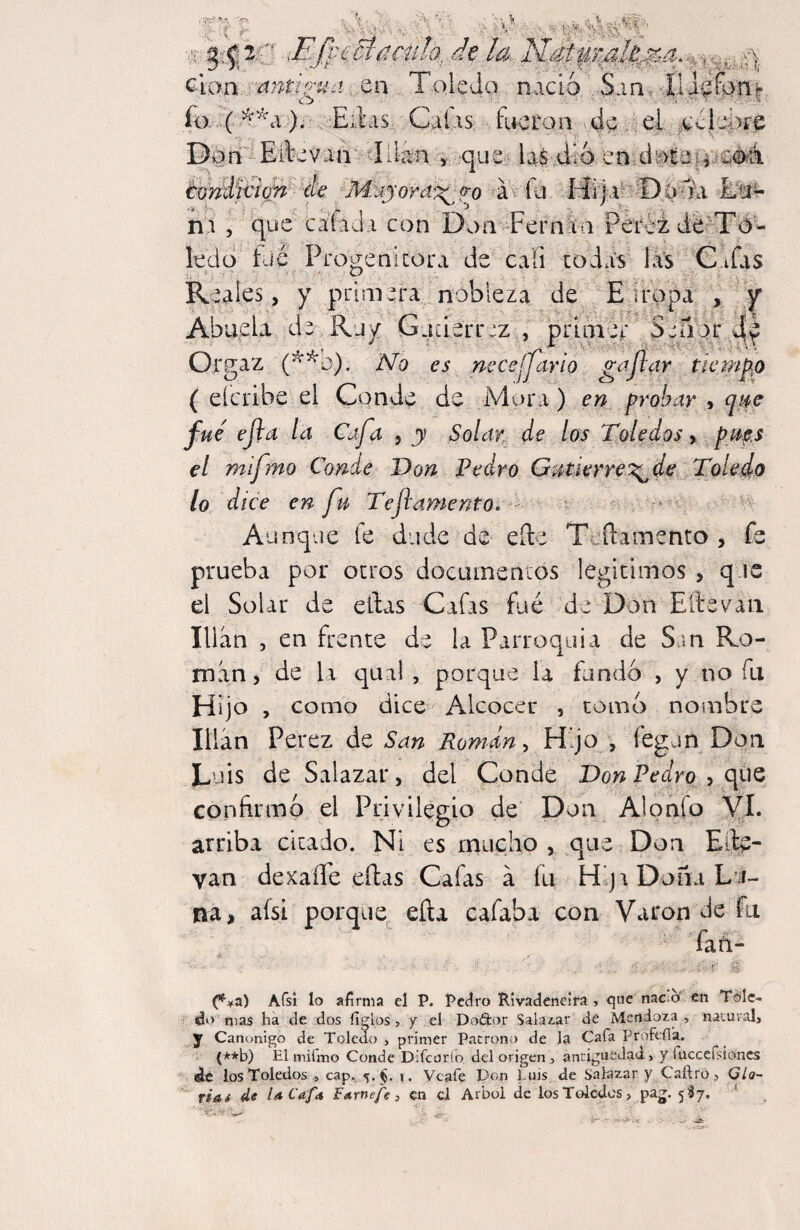 352 Espectaculo de la Naturaleza.
cion antigua en Toledo nació San Ildefon-
so (**a). Estas Casas fueron de el célebre
Don Estevan Illan, que las dió en dote, con
condicion de Mayorazgo à su Hija Doña Lu-
na, que casada con Don Fernan Perez de To-
ledo fué Progenitora de casi todas las Casas
Reales, y primera nobleza de Europa, y
Abuela de Ruy Gutierrez, primer Señor de
Orgaz (**b). No es necessario gastar tiempo
( escribe el Conde de Mora ) en probar, que
fué esta la Casa, y Solar de los Toledos, pues
el mismo Conde Don Pedro Gutierrez de Toledo
lo dice en su Testamento.
Aunque se dude de este Testamento, se
prueba por otros documentos legitimos, que
el Solar de estas Casas fué de Don Estevan
Illán, en frente de la Parroquia de San Ro-
mán, de la qual, porque la fundó, y no su
Hijo, como dice Alcocer, tomó nombre
Illán Perez de San Román, Hijo, segun Don
Luis de Salazar, del Conde Don Pedro, que
confirmó el Privilegio de Don Alonso VI.
arriba citado. Ni es mucho, que Don Este-
van dexasse estas Casas à su Hija Doña Lu-
na, assi porque esta casaba con Varon de su
san-
(*ya) Assi lo afirma el P. Pedro Rivadeneira, que nació en Tole-
do mas ha de dos siglos, y el Doctor Salazar de Mendoza, natural,
y Canonigo de Toledo, primer Patrono de la Casa Professa.
(**b) El mismo Conde Discurso del origen, antiguedad, y successiones
de los Toledos, cap. 5. §. 1. Vease Don Luis de Salazar y Castro, Glo-
rias de la Casa Farnese, en el Arbol de los Toledos, pag. 587.